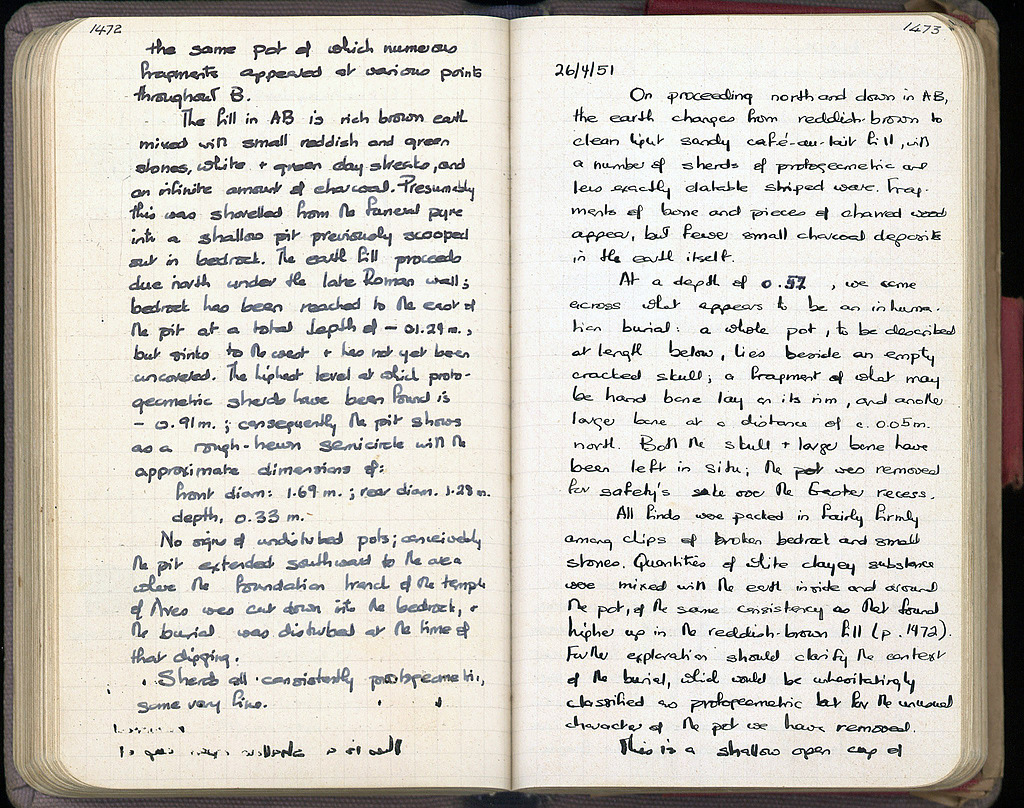 1472
the same pot of which numerous
fragments appeared at various points
throughout B.
The fill in AB is rich brown earth
mixed with small reddish and green
stones, white + green clay streaks, and
an infinite amount of charcoal. Presumably
this was shovelled from the funeral pyre
into a shallow pit previously scooped
out in bedrock. The earth fill proceeds
due north under the late Roman wall;
bedrock has been reached to the east of
the pit at a total depth of – 01.29 m.,
but sinks to the west + has not yet been
uncovered. The highest level at which proto-
geometric sherds have been found is
– 0.91m.; consequently the pit shows
as a rough-hewn semicircle with the
approximate dimensions of:
front diam: 1.69 m.; rear diam. 1.28 m.
depth, 0.33 m.-
No signs of undisturbed pots; conceivably
the pit extended southward to the area
where the foundation trench of the temple
of Ares was cut down into the bedrock, +
the burial was disturbed at the time of
that digging.
Sherds all consistently protogeometric,
some very fine.
1473
26/4/51
On proceeding north and down in AB,
the earth changes from reddish-brown to
clean light sandy café-au-lait fill, with
a number of sherds of protogeometric and
less exactly datable striped ware. Frag-
ments of bone and pieces of charred wood
appear, but fewer small charcoal deposits
in the earth itself.
At a depth of 0.57, we came
across what appears to be an inhuma-
tion burial: a whole pot, to be described
at length below, lies beside an empty
cracked skull; a fragment of what may
be hand bone lay on its rim, and another
large bone at a distance of c. 0.05m.
north. Both the skull + large bone have
been left in situ; the pot was removed
for safety's sake over the Easter recess.
All finds were packed in fairly firmly
among chips of broken bedrock and small
stones. Quantities of white clayey substance
were mixed with the earth inside and around
the pot, of the same consistency as that found
higher up in the reddish-brown fill (p. 1472).
Further exploration should clarify the context
of the burial, which would be unhesitatingly
classified as protogeometric but for the unusual
character of the pot we have removed.
This is a shallow open cup of